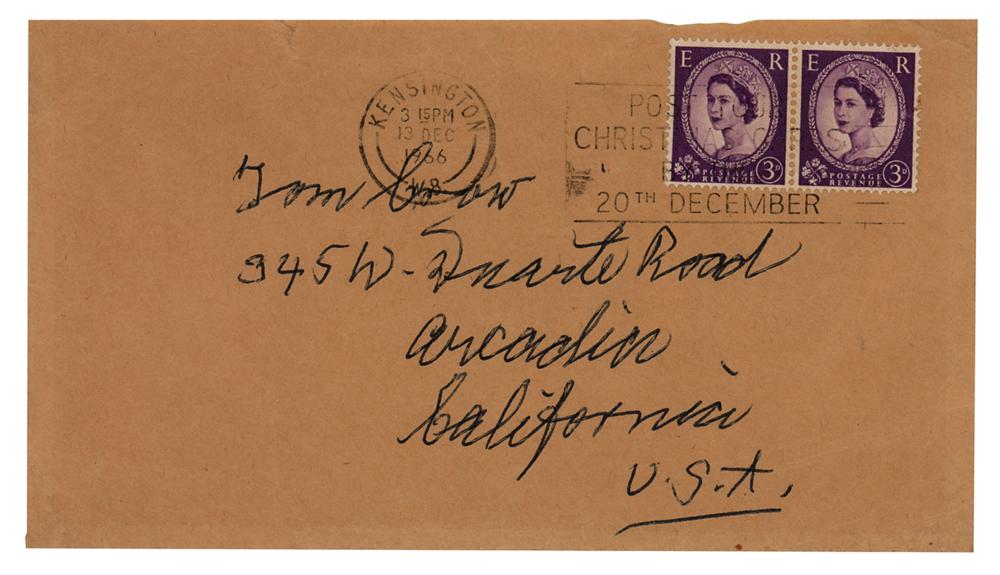 KENSINGTON
3 15PM
13 DEC
1966
W.8
POST
CHRISTMAS
20TH DECEMBER
E R
POSTAGE
REVENUE
3D
E R
POSTAGE
REVENUE
3D
Tom Crow
345 W. Duarte Road
Arcadia
California
U.S.A.